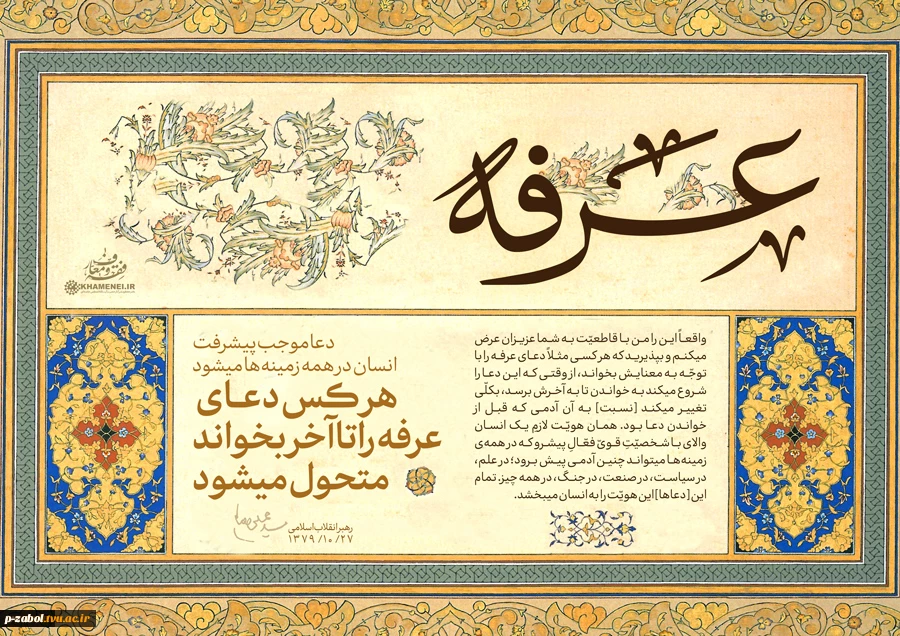 عرفه
فقه و معارف
KHAMENEI.IR
دعا موجب پیشرفت
انسان در همه زمینه‌ها میشود
هر کس دعای
عرفه را تا آخر بخواند
متحول میشود
رهبر انقلاب اسلامی
۱۳۷۹/۱۰/۲۷
واقعاً این را من با قاطعیّت به شما عزیزان عرض
میکنم و بپذیرید که هر کسی مثلاً دعای عرفه را با
توجّه به معنایش بخواند، از وقتی که این دعا را
شروع میکند به خواندن تا به آخرش برسد، بکلّی
تغییر میکند [نسبت] به آن آدمی که قبل از
خواندن دعا بود. همان هویّت لازمِ یک انسان
والای با شخصیّتِ قویّ فعّالِ پیشرو که در همه‌ی
زمینه‌ها میتواند چنین آدمی پیش برود؛ در علم،
در سیاست، در صنعت، در جنگ، در همه چیز. تمام
این [دعاها] این هویّت را به انسان میبخشد.
p-zabol.tvu.ac.ir